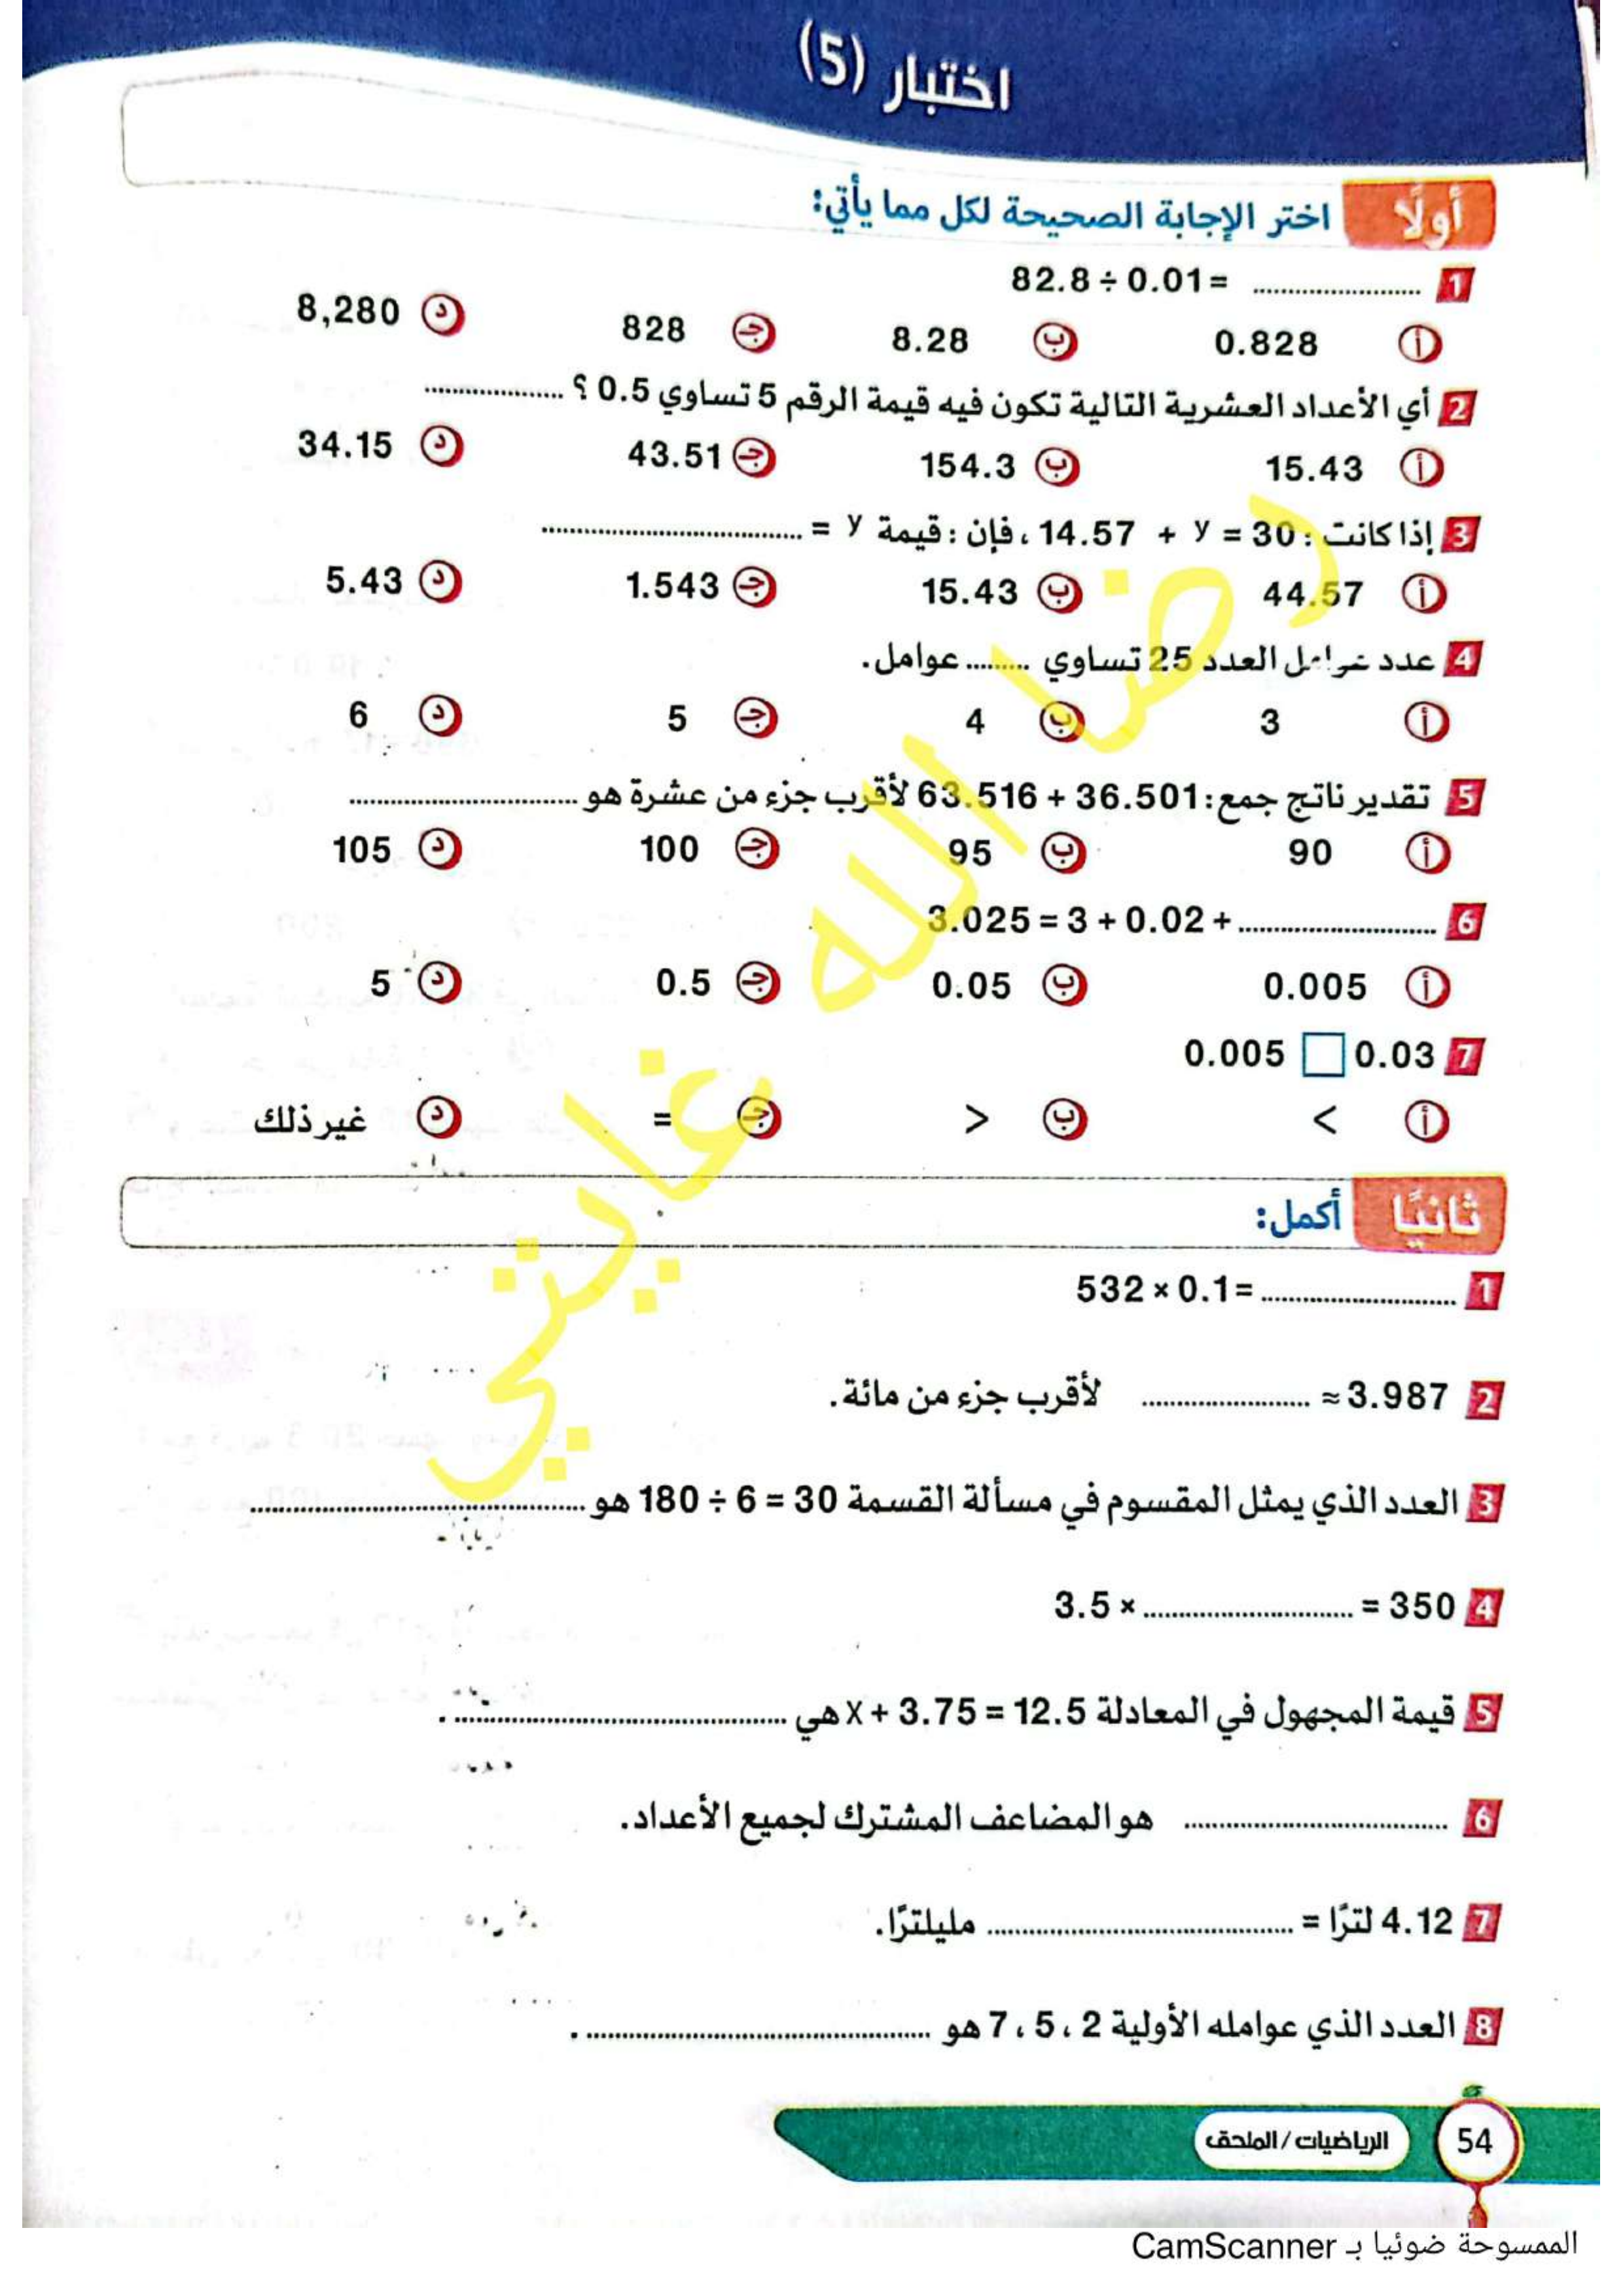 اختبار (5)
أولًا اختر الإجابة الصحيحة لكل مما يأتي:
1 82.8 ÷ 0.01 = ....................
أ 0.828 ب 8.28 ج 828 د 8,280
2 أي الأعداد العشرية التالية تكون فيه قيمة الرقم 5 تساوي 0.5 ؟ ....................
أ 15.43 ب 154.3 ج 43.51 د 34.15
3 إذا كانت : 14.57 + y = 30 ، فإن : قيمة y = ....................
أ 44.57 ب 15.43 ج 1.543 د 5.43
4 عدد عوامل العدد 25 تساوي ......... عوامل.
أ 3 ب 4 ج 5 د 6
5 تقدير ناتج جمع: 63.516 + 36.501 لأقرب جزء من عشرة هو ....................
أ 90 ب 95 ج 100 د 105
6 3.025 = 3 + 0.02 + ....................
أ 0.005 ب 0.05 ج 0.5 د 5
7 0.005 □ 0.03
أ < ب > ج = د غير ذلك
رضا الله غايتي
ثانيًا أكمل:
1 532 × 0.1 = ....................
2 3.987 ≈ .................... لأقرب جزء من مائة.
3 العدد الذي يمثل المقسوم في مسألة القسمة 180 ÷ 6 = 30 هو ....................
4 3.5 × .................... = 350
5 قيمة المجهول في المعادلة x + 3.75 = 12.5 هي .................... .
6 .................... هو المضاعف المشترك لجميع الأعداد.
7 4.12 لترًا = .................... مليلترًا.
8 العدد الذي عوامله الأولية 2 ، 5 ، 7 هو .................... .
54 الرياضيات / الملحق
الممسوحة ضوئيا بـ CamScanner